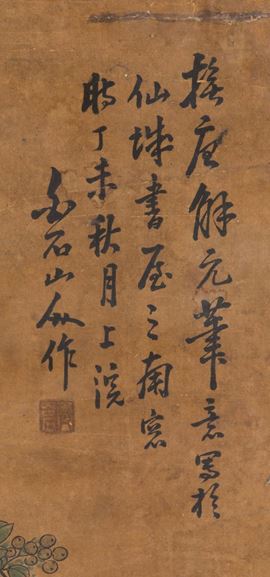 撫唐解元筆意寫於
仙城書屋之南窓
時丁未秋月上浣
白石山作